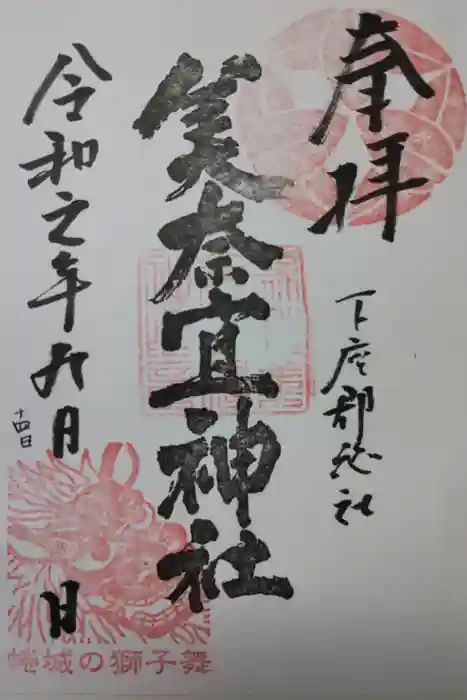 奉拝
下座郡総社
美奈宜神社
令和元年九月 日
十四日
蜷城の獅子舞